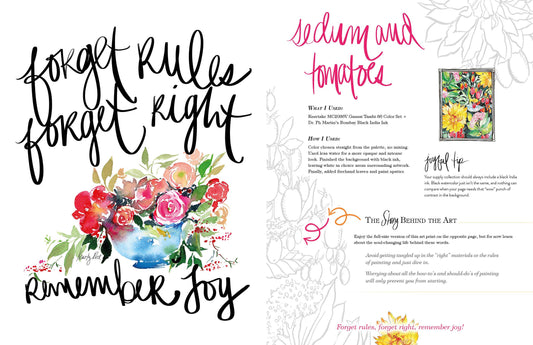 forget rules
forget right
remember joy
sedum and
tomatoes
WHAT I USED:
Kuretake MC20/60V Gansai Tambi 60 Color Set +
Dr. Ph Martin's Bombay Black India Ink
HOW I USED:
Color chosen straight from the palette, no mixing.
Used less water for a more opaque and intense
look. Finished the background with black ink,
leaving white in choice areas surrounding artwork.
Finally, added freehand leaves and paint spatter.
joyful tip
Your supply collection should always include a black India
ink. Black watercolor just isn't the same, and nothing can
compare when your page needs that "wow" punch of
contrast in the background.
THE Story BEHIND THE ART
Enjoy the full-size version of this art print on the opposite page, but for now learn
about the soul-changing life behind these words.
Avoid getting tangled up in the "right" materials or the rules
of painting and just dive in.
Worrying about all the how-to's and should-do's of painting
will only prevent you from starting.
Forget rules, forget right, remember joy!